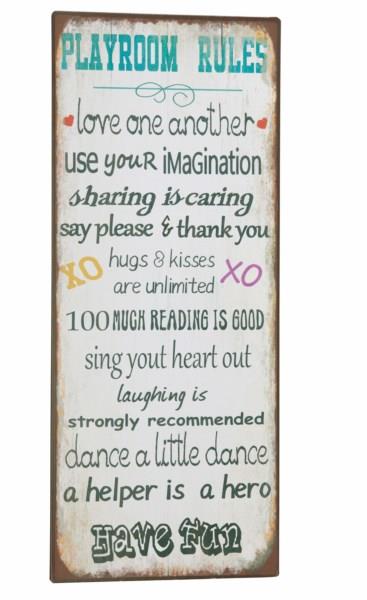 PLAYROOM RULES
love one another
use youR iMaGination
sharing is caring
say please & thank you
XO hugs & kisses XO
are unlimited
100 MUCH READING IS GOOD
sing yout heart out
laughing is
strongly recommended
dance a little dance
a helper is a hero
Have Fun